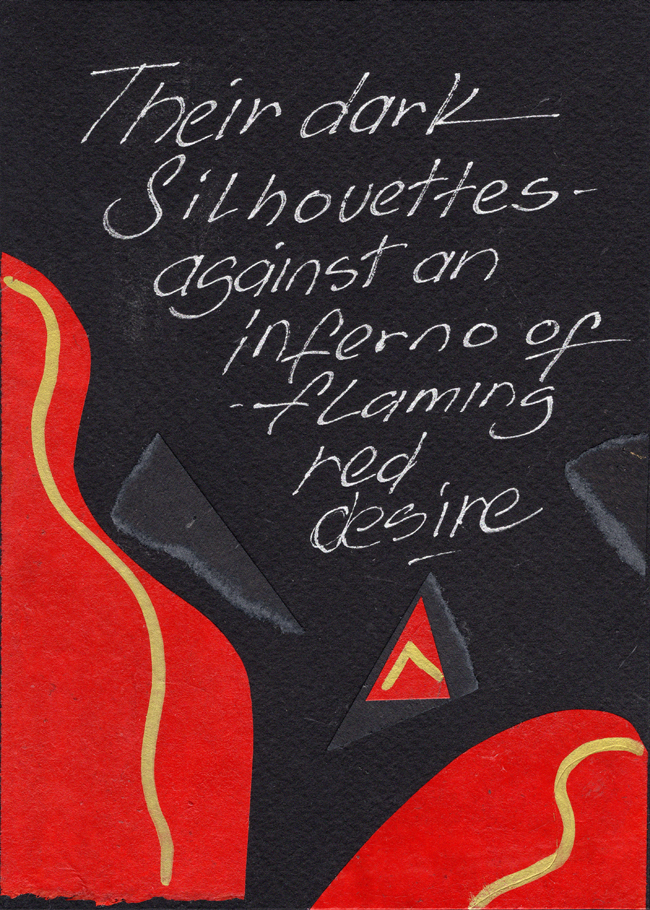 Their dark
Silhouettes-
against an
inferno of
-flaming
red
desire